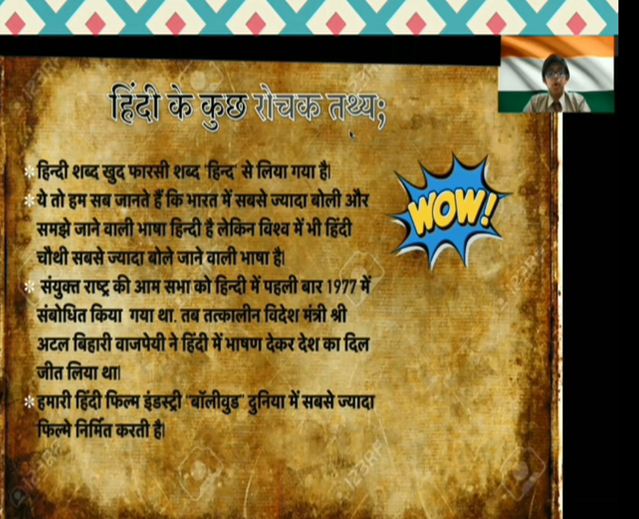 हिंदी के कुछ रोचक तथ्य;
WOW!
*हिन्दी शब्द खुद फारसी शब्द 'हिन्द' से लिया गया है|
*ये तो हम सब जानते हैं कि भारत में सबसे ज्यादा बोली और
समझे जाने वाली भाषा हिन्दी है लेकिन विश्व में भी हिंदी
चौथी सबसे ज्यादा बोले जाने वाली भाषा है|
* संयुक्त राष्ट्र की आम सभा को हिन्दी में पहली बार 1977 में
संबोधित किया गया था. तब तत्कालीन विदेश मंत्री श्री
अटल बिहारी वाजपेयी ने हिंदी में भाषण देकर देश का दिल
जीत लिया था|
*हमारी हिंदी फिल्म इंडस्ट्री "बॉलीवुड" दुनिया में सबसे ज्यादा
फिल्मे निर्मित करती है|
123RF
123RF
123RF